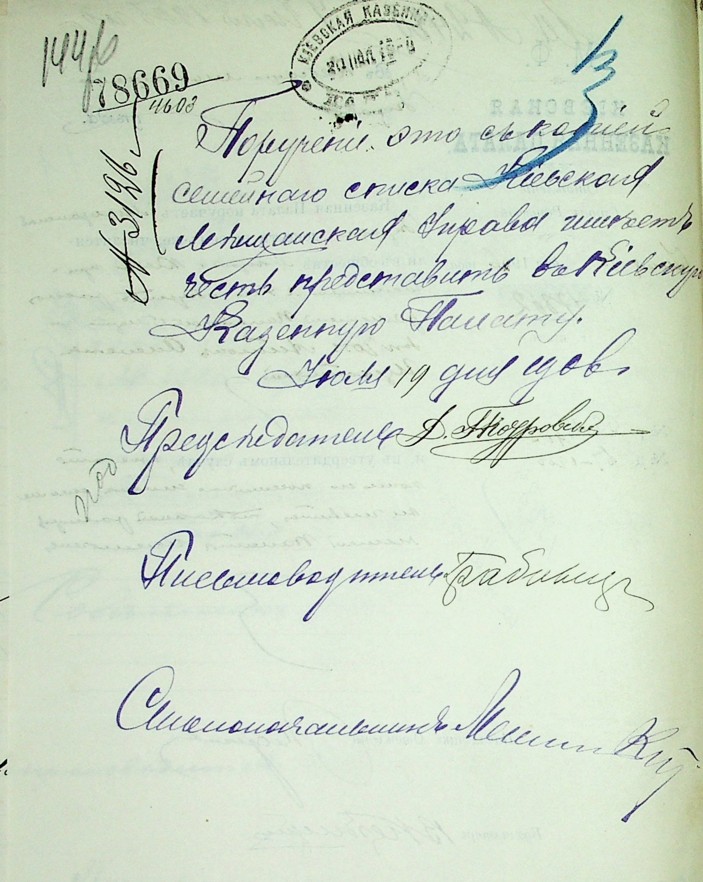 144/6
78669
4603
КІЕВСКАЯ КАЗЕННАЯ
20 ІЮЛ
№ 3126
Порученіе это съ копіей
семейнаго списка Кіевская
Мѣщанская Управа имѣетъ
честь представить въ Кіевскую
Казенную Палату.
Іюля 19 дня
Предсѣдатель
Письмоводитель
Столоначальникъ